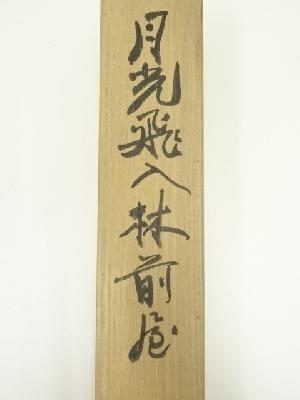 月光飛入林前屋